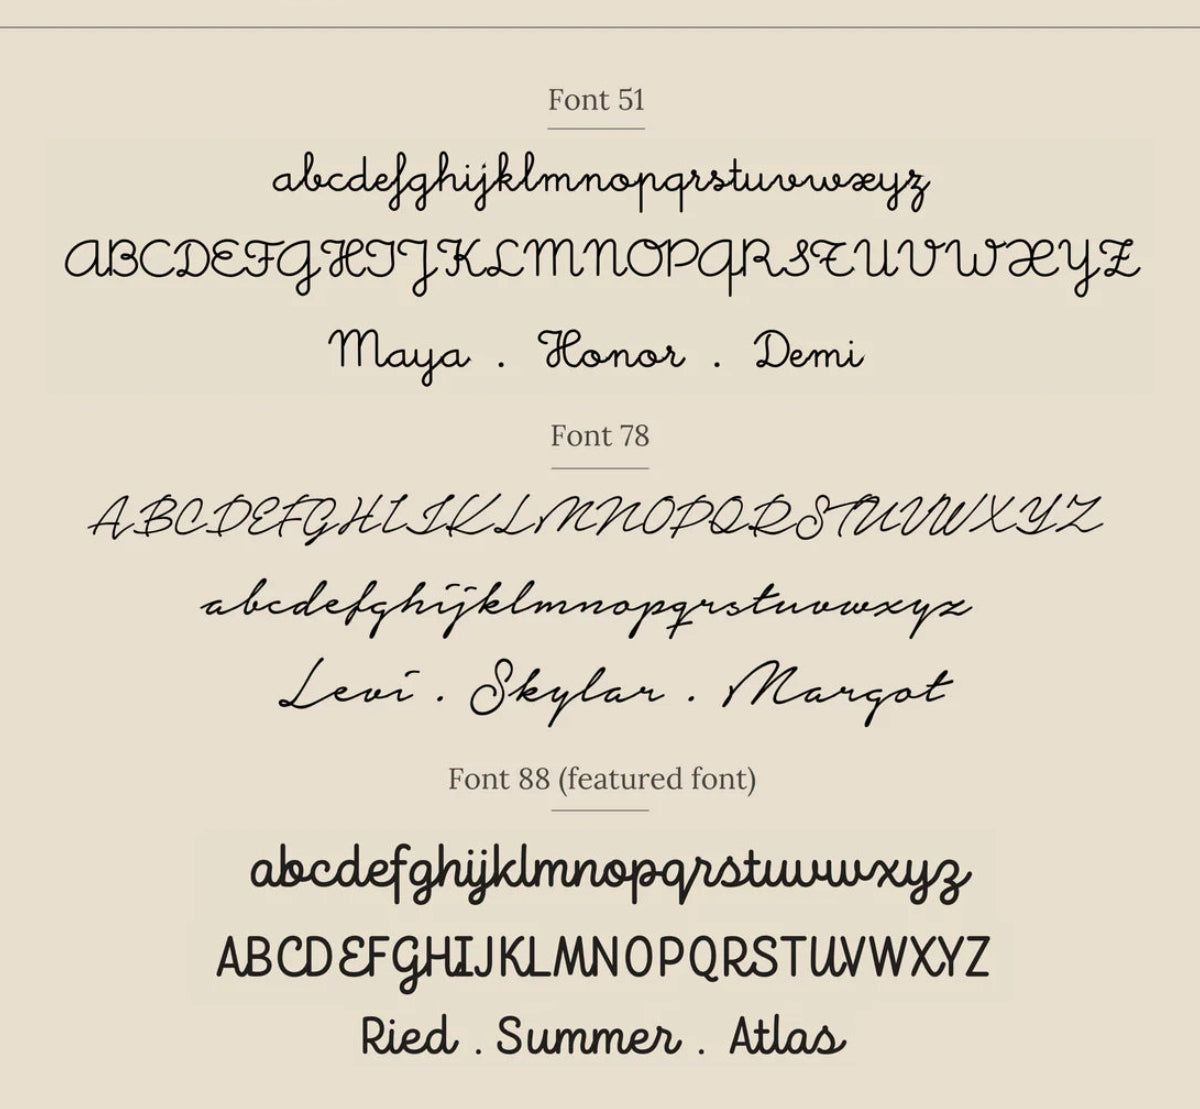 Font 51
abcdefghijklmnopqrstuvwxyz
ABCDEFGHIJKLMNOPQRSTUVWXYZ
Maya . Honor . Demi
Font 78
ABCDEFGHIJKLMNOPQRSTUVWXYZ
abcdefghijklmnopqrstuvwxyz
Levi . Skylar . Margot
Font 88 (featured font)
abcdefghijklmnopqrstuvwxyz
ABCDEFGHIJKLMNOPQRSTUVWXYZ
Ried . Summer . Atlas